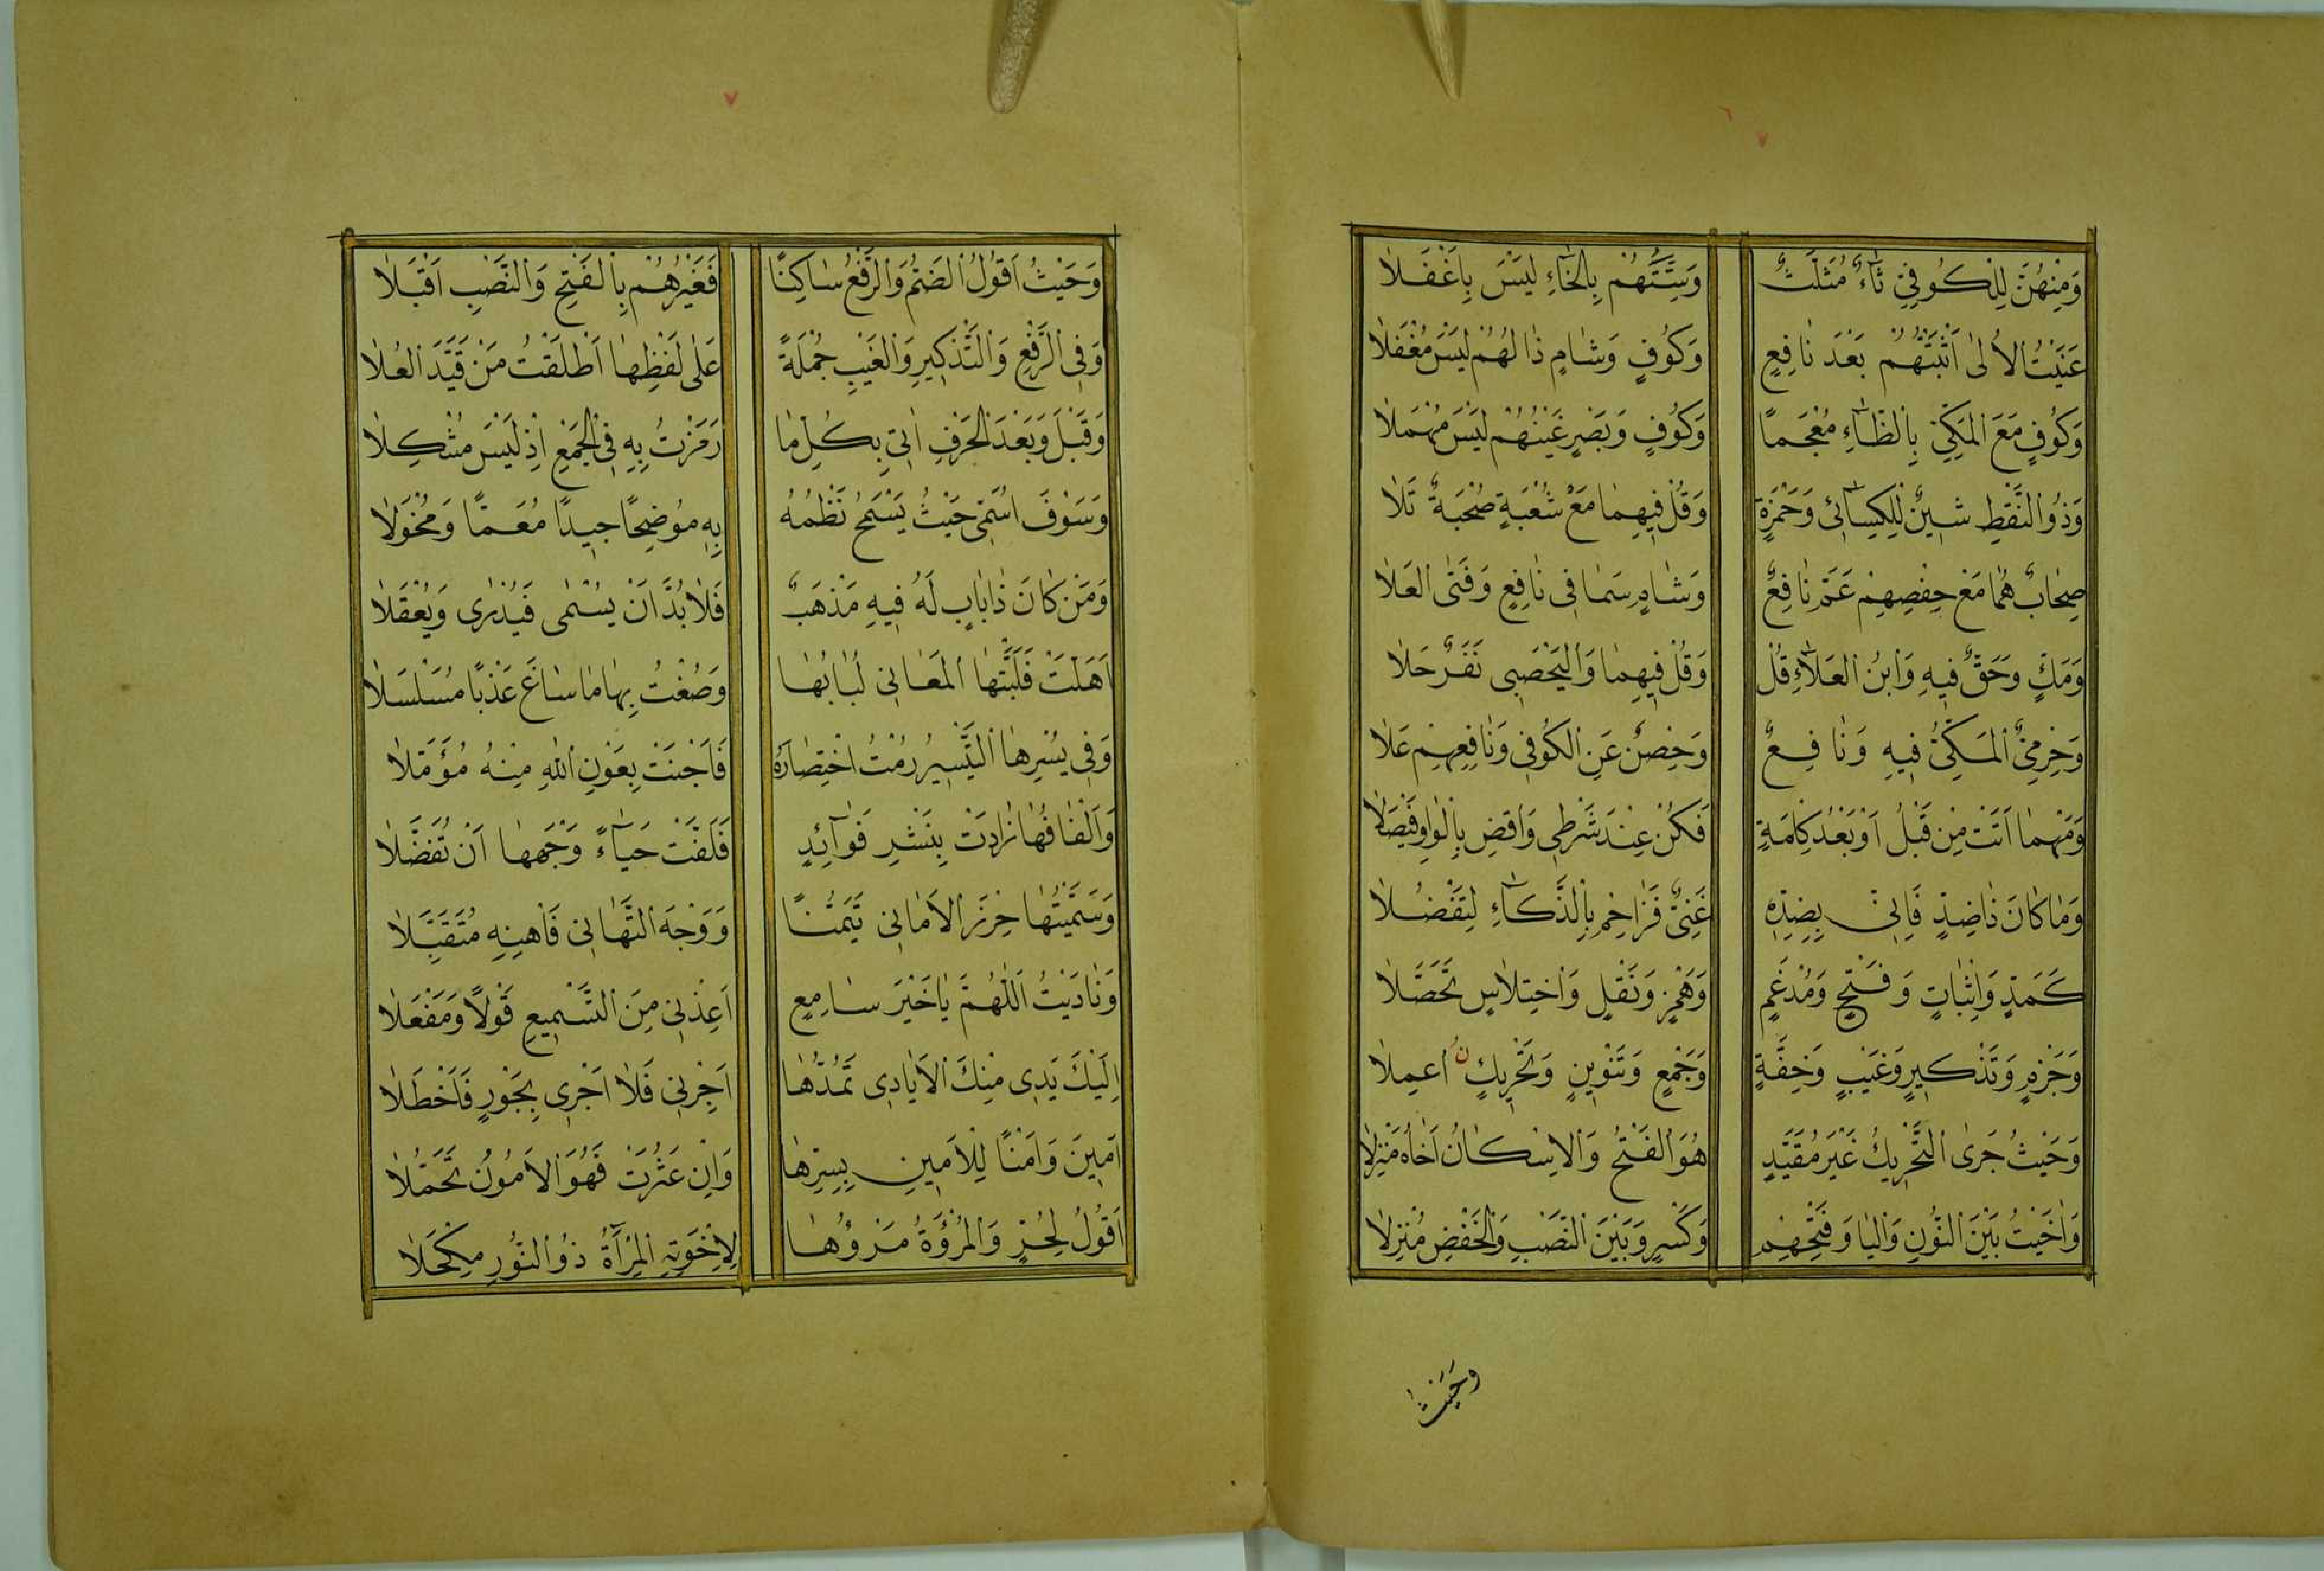 وَمِنْهُنَّ لِلْكُوفِيِّ ثَاءٌ مُثَلَّثٌ وَسِتَّتُهُمْ بِالْخَاءِ لَيْسَ بِاَغْفَلَا
عَنَيْتُ الْاُلٰى اَثْبَتُّهُمْ بَعْدَ نَافِعٍ وَكُوفٍ وَشَامٍ ذَالُهُمْ لَيْسَ مُغْفَلَا
وَكُوفٍ مَعَ الْمَكِّيِّ بِالظَّاءِ مُعْجَمًا وَكُوفٍ وَبَصْرٍ غَيْنُهُمْ لَيْسَ مُهْمَلَا
وَذُو النَّقْطِ شِينٌ لِلْكِسَائِي وَحَمْزَةٍ وَقُلْ فِيهِمَا مَعْ شُعْبَةٍ صُحْبَةٌ تَلَا
صِحَابٌ هُمَا مَعْ حَفْصِهِمْ عَمَّ نَافِعٌ وَشَامٍ سَمَا فِي نَافِعٍ وَفَتَى الْعَلَا
وَمَكٍّ وَحَقٌّ فِيهِ وَابْنُ الْعَلَاءِ قُلْ وَقُلْ فِيهِمَا وَالْيَحْصَبِي نَفَرٌ حَلَا
وَحِرْمِيٌّ الْمَكِّيُّ فِيهِ وَنَافِعٌ وَحِصْنٌ عَنِ الْكُوفِي وَنَافِعِهِمْ عَلَا
وَمَهْمَا اَتَتْ مِنْ قَبْلُ اَوْ بَعْدُ كِلْمَةٍ فَكُنْ عِنْدَ شَرْطِي وَاقْضِ بِالْوَاوِ فَيْصَلَا
وَمَا كَانَ ذَا ضِدٍّ فَاِنِّي بِضِدِّهِ غَنِيٌّ فَزَاحِمْ بِالذَّكَاءِ لِتَفْضُلَا
كَمَدٍّ وَاِثْبَاتٍ وَفَتْحٍ وَمُدْغَمٍ وَهَمْزٍ وَنَقْلٍ وَاخْتِلَاسٍ تَحَصَّلَا
وَجَزْمٍ وَتَذْكِيرٍ وَغَيْبٍ وَخِفَّةٍ وَجَمْعٍ وَتَنْوِينٍ وَتَحْرِيكٍ نُ اعْمِلَا
وَحَيْثُ جَرَى التَّحْرِيكُ غَيْرَ مُقَيَّدٍ هُوَ الْفَتْحُ وَالْاِسْكَانُ اَخَاهُ مَنْزِلَا
وَاٰخَيْتُ بَيْنَ النُّونِ وَالْيَا وَفَتْحِهِمْ وَكَسْرٍ وَبَيْنَ النَّصْبِ وَالْخَفْضِ مُنْزِلَا
وَحَيْثُ
وَحَيْثُ اَقُولُ الضَّمُّ وَالرَّفْعُ سَاكِتًا فَغَيْرُهُمْ بِالْفَتْحِ وَالنَّصْبِ اَقْبَلَا
وَفِي الرَّفْعِ وَالتَّذْكِيرِ وَالْغَيْبِ جُمْلَةً عَلٰى لَفْظِهَا اَطْلَقْتُ مَنْ قَيَّدَ الْعُلَا
وَقَبْلَ وَبَعْدَ الْحَرْفِ اٰتِي بِكُلِّ مَا رَمَزْتُ بِهِ فِي الْجَمْعِ اِذْ لَيْسَ مُشْكِلَا
وَسَوْفَ اُسَمِّي حَيْثُ يَسْمَحُ نَظْمُهُ بِهِ مُوضِحًا جِيدًا مُعَمًّا وَمُخْوَلَا
وَمَنْ كَانَ ذَا بَابٍ لَهُ فِيهِ مَذْهَبٌ فَلَا بُدَّ اَنْ يُسْمٰى فَيُدْرٰى وَيُعْقَلَا
اَهَلَّتْ فَلَبَّتْهَا الْمَعَانِي لُبَابُهَا وَصُغْتُ بِهَا مَا سَاغَ عَذْبًا مُسَلْسَلَا
وَفِي يُسْرِهَا التَّيْسِيرُ رُمْتُ اخْتِصَارَهُ فَاَجْنَتْ بِعَوْنِ اللّٰهِ مِنْهُ مُؤَمَّلَا
وَاَلْفَافُهَا زَادَتْ بِنَشْرِ فَوَائِدٍ فَلَفَّتْ حَيَاءً وَجْهَهَا اَنْ تُفَضَّلَا
وَسَمَّيْتُهَا حِرْزَ الْاَمَانِي تَيَمُّنًا وَوَجْهَ التَّهَانِي فَاهْنِهِ مُتَقَبِّلَا
وَنَادَيْتُ اَللّٰهُمَّ يَا خَيْرَ سَامِعٍ اَعِذْنِي مِنَ التَّسْمِيعِ قَوْلًا وَمَفْعَلَا
اِلَيْكَ يَدِي مِنْكَ الْاَيَادِي تَمُدُّهَا اَجِرْنِي فَلَا اَجْرِي بِجَوْرٍ فَاَخْطَلَا
اٰمِينَ وَاَمْنًا لِلْاَمِينِ بِسِرِّهَا وَاِنْ عَثَرَتْ فَهُوَ الْاَمُونُ تَحَمُّلَا
اَقُولُ لِحُرٍّ وَالْمُرُؤَةُ مَرْؤُهَا لِاِخْوَتِهِ الْمِرْآةُ ذُو النُّورِ مِكْحَلَا